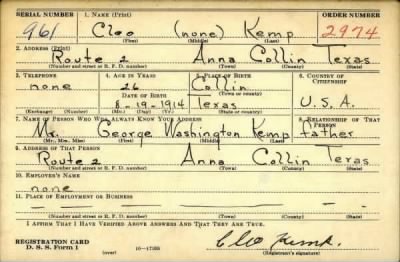 SERIAL NUMBER 1. NAME (Print) ORDER NUMBER
961 Cleo (none) Kemp 2974
(First) (Middle) (Last)
2. ADDRESS (Print)
Route 2 Anna Collin Texas
(Number and street or R. F. D. number) (Town) (County) (State)
3. TELEPHONE 4. AGE IN YEARS 5. PLACE OF BIRTH 6. COUNTRY OF CITIZENSHIP
none 26 Collin
DATE OF BIRTH (Town or county)
8-19-1914 Texas U.S.A.
(Exchange) (Number) (Mo.) (Day) (Yr.) (State or country)
7. NAME OF PERSON WHO WILL ALWAYS KNOW YOUR ADDRESS 8. RELATIONSHIP OF THAT PERSON
Mr. George Washington Kemp father
(Mr., Mrs., Miss) (First) (Middle) (Last)
9. ADDRESS OF THAT PERSON
Route 2 Anna Collin Texas
(Number and street or R. F. D. number) (Town) (County) (State)
10. EMPLOYER'S NAME
none
11. PLACE OF EMPLOYMENT OR BUSINESS
(Number and street or R. F. D. number) (Town) (County) (State)
I AFFIRM THAT I HAVE VERIFIED ABOVE ANSWERS AND THAT THEY ARE TRUE.
REGISTRATION CARD
D. S. S. Form 1 (over) Cleo Kemp
(Registrant's signature)